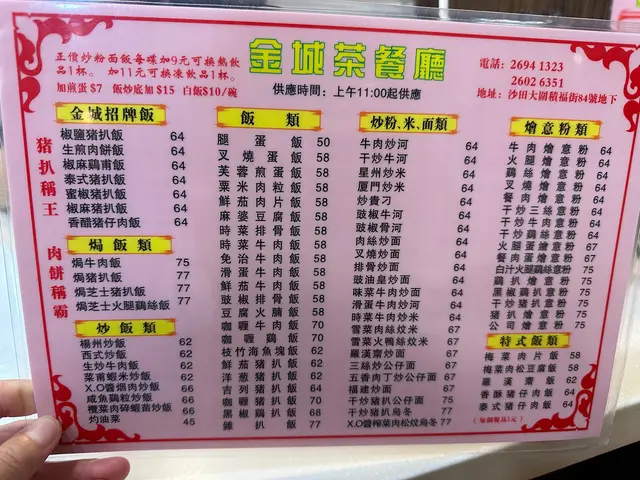 正價炒粉面飯每碟加9元可換熱飲
品1杯。 加11元可換凍飲品1杯。
加煎蛋$7 飯炒底加$15 白飯$10/碗
金城茶餐廳
供應時間：上午11:00起供應
電話：2694 1323
2602 6351
地址：沙田大圍積福街84號地下
豬扒稱王
肉餅稱霸
金城招牌飯
椒鹽豬扒飯 64
生煎肉餅飯 64
椒麻鷄甫飯 64
泰式豬扒飯 64
蜜椒豬扒飯 64
椒麻豬扒飯 64
香醋豬仔肉飯 64
焗飯類
焗牛肉飯 75
焗豬扒飯 77
焗芝士豬扒飯 77
焗芝士火腿鷄絲飯 77
炒飯類
楊州炒飯 62
西式炒飯 62
生炒牛肉飯 62
菜甫蝦米炒飯 62
X.O醬烟肉炒飯 66
咸魚鷄粒炒飯 66
欖菜肉碎蝦苗炒飯 66
灼油菜 45
飯類
腿蛋飯 50
叉燒蛋飯 58
芙蓉煎蛋飯 58
粟米肉粒飯 58
鮮茄肉片飯 58
麻婆豆腐飯 58
時菜排骨飯 58
時菜牛肉飯 58
免治牛肉飯 58
滑蛋牛肉飯 58
鮮茄牛肉飯 58
豉椒排骨飯 58
豆腐火腩飯 58
咖喱牛肉飯 70
咖喱鷄飯 70
枝竹海魚塊飯 62
鮮茄豬扒飯 62
洋葱豬扒飯 62
吉列豬扒飯 64
咖喱豬扒飯 70
黑椒鷄扒飯 68
雜扒飯 77
炒粉、米、面類
牛肉炒河 64
干炒牛河 64
星州炒米 64
廈門炒米 64
炒貴刁 64
豉椒牛河 64
豉椒骨河 64
肉絲炒面 64
叉燒炒面 64
排骨炒面 64
豉油皇炒面 64
味菜牛肉炒面 64
滑蛋牛肉炒河 64
時菜牛肉炒河 64
雪菜肉絲炆米 67
雪菜火鴨絲炆米 67
羅漢齋炒面 67
三絲炒公仔面 67
五香肉丁炒公仔面 67
福建炒面 67
干炒豬扒公仔面 75
干炒豬扒烏冬 77
X.O醬榨菜肉松炆烏冬 77
燴意粉類
牛肉燴意粉 64
火腿燴意粉 64
鷄絲燴意粉 64
叉燒燴意粉 64
餐肉燴意粉 64
干炒三絲意粉 64
干炒牛肉意粉 64
干炒鷄絲意粉 64
火腿蛋燴意粉 67
餐肉蛋燴意粉 67
白汁火腿鷄絲意粉 75
鷄扒燴意粉 75
黑椒鷄扒意粉 75
干炒豬扒意粉 75
豬扒燴意粉 75
公司燴意粉 75
特式飯類
梅菜肉片飯 58
梅菜肉松豆腐飯 58
羅漢齋飯 62
香酥豬仔肉飯 64
泰式豬仔肉飯 64